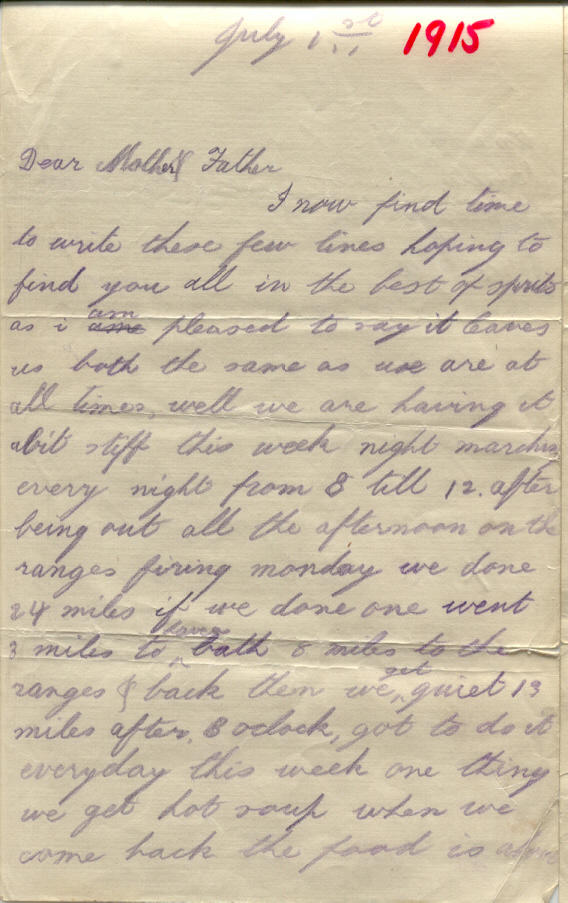 July 1st 1915
Dear Mother & Father
I now find time
to write these few lines hoping to
find you all in the best of sprits
as i am pleased to say it leaves
us both the same as we are at
all times, well we are having it
abit stiff this week night marchin
every night from 8 till 12. after
being out all the afternoon on the
ranges firing monday we done
24 miles if we done one went
3 miles to have bath 8 miles to the
ranges & back then we get quiet 13
miles after 8 oclock, got to do it
everyday this week one thing
we get hot soup when we
come back the food is